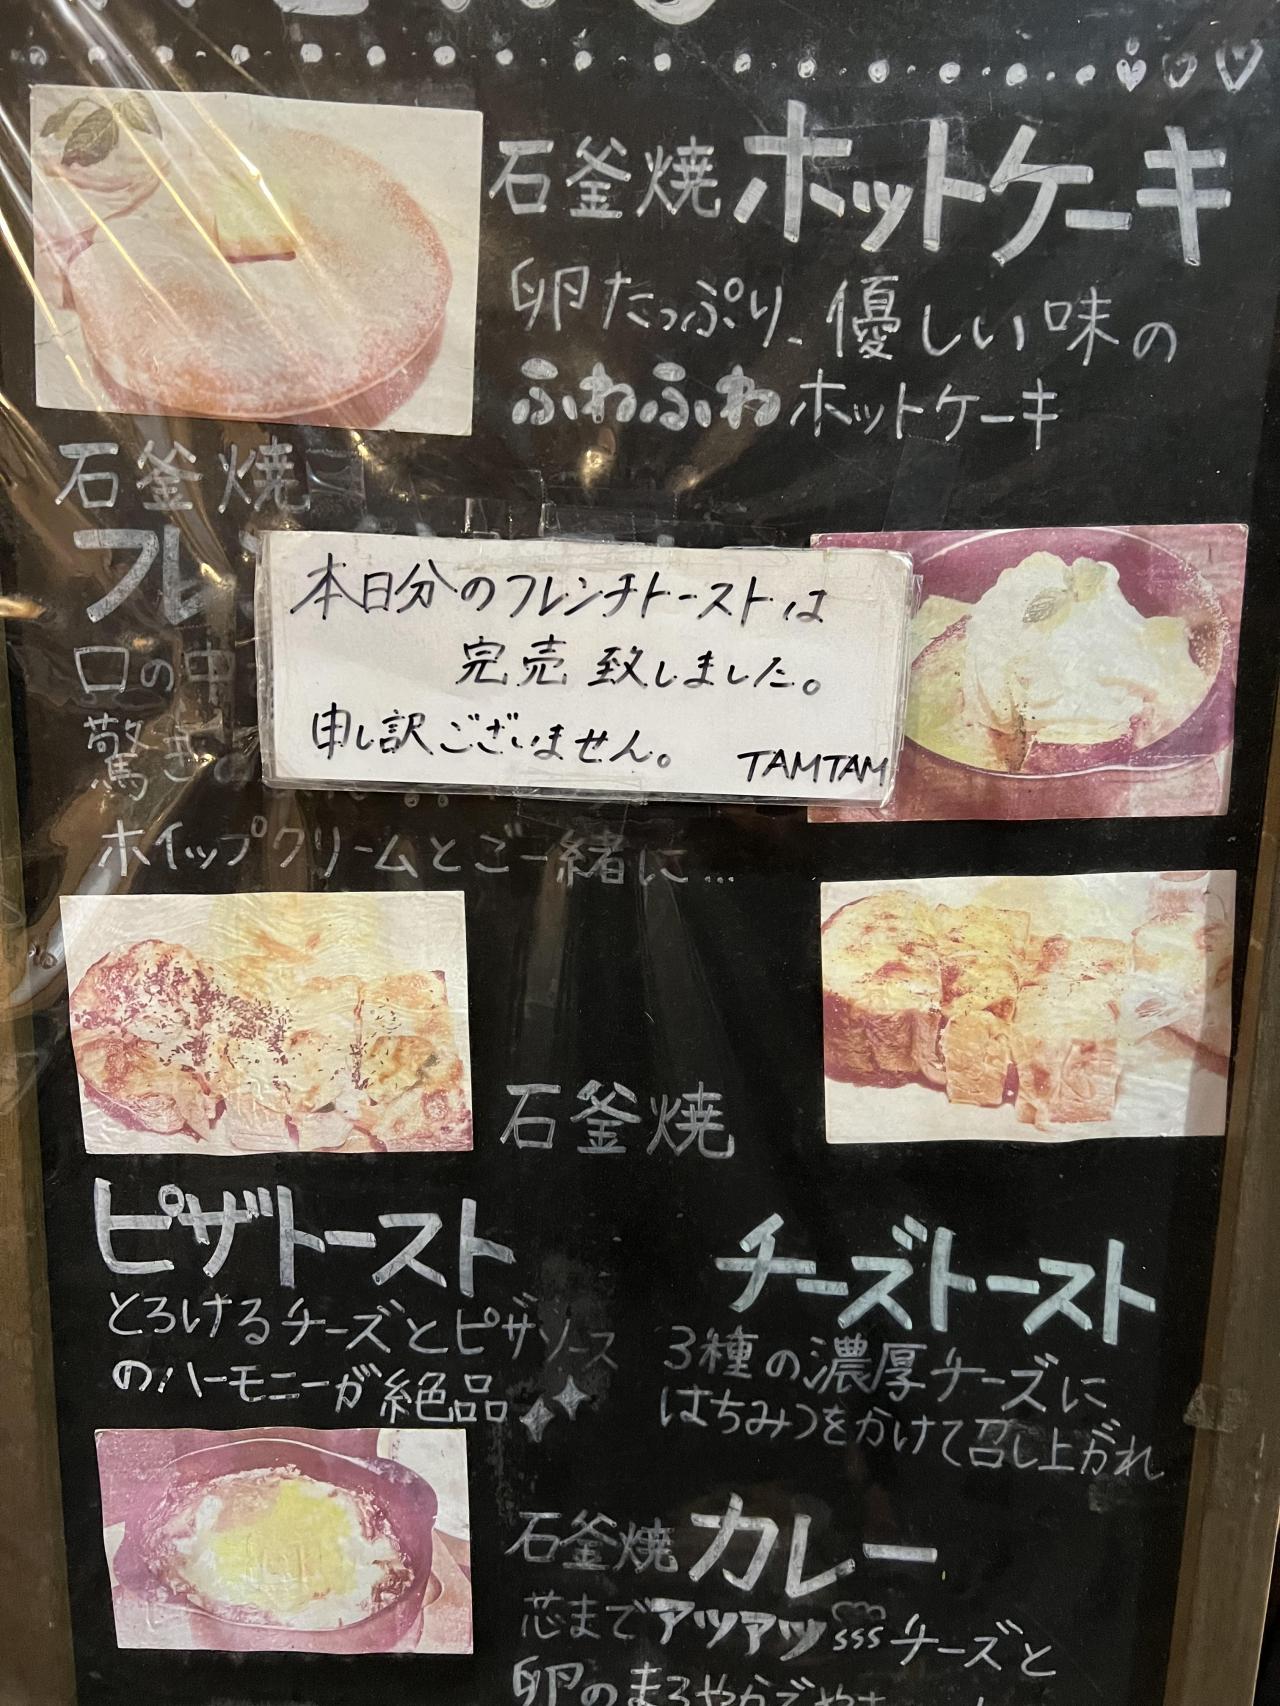 石釜焼ホットケーキ
卵たっぷり、優しい味の
ふわふわホットケーキ
石釜焼
フレン
口の中
驚きの
本日分のフレンチトーストは
完売致しました。
申し訳ございません。
TAMTAM
ホイップクリームとご一緒に…
石釜焼
ピザトースト
とろけるチーズとピザソース
のハーモニーが絶品
チーズトースト
3種の濃厚チーズに
はちみつをかけて召し上がれ
石釜焼カレー
芯までアツアツsssチーズと
卵のまろやかで